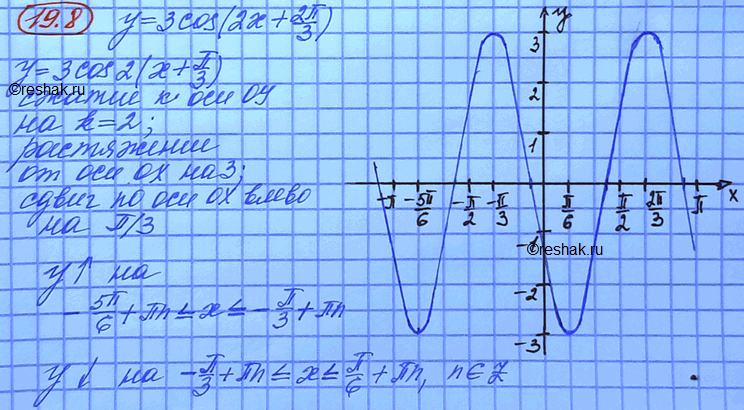 19.8
y=3cos(2x+2π/3)
y=3cos2(x+π/3)
©reshak.ru
сжатие к оси ОУ
на k=2;
растяжение
от оси ОХ на 3;
сдвиг по оси ОХ влево
на π/3
y↑ на
-5π/6+πn≤x≤-π/3+πn
y↓ на -π/3+πn≤x≤π/6+πn, n∈Z
y
3
2
1
-π -5π/6 -π/2 -π/3 π/6 π/2 2π/3 π x
-1
©reshak.ru
-2
-3